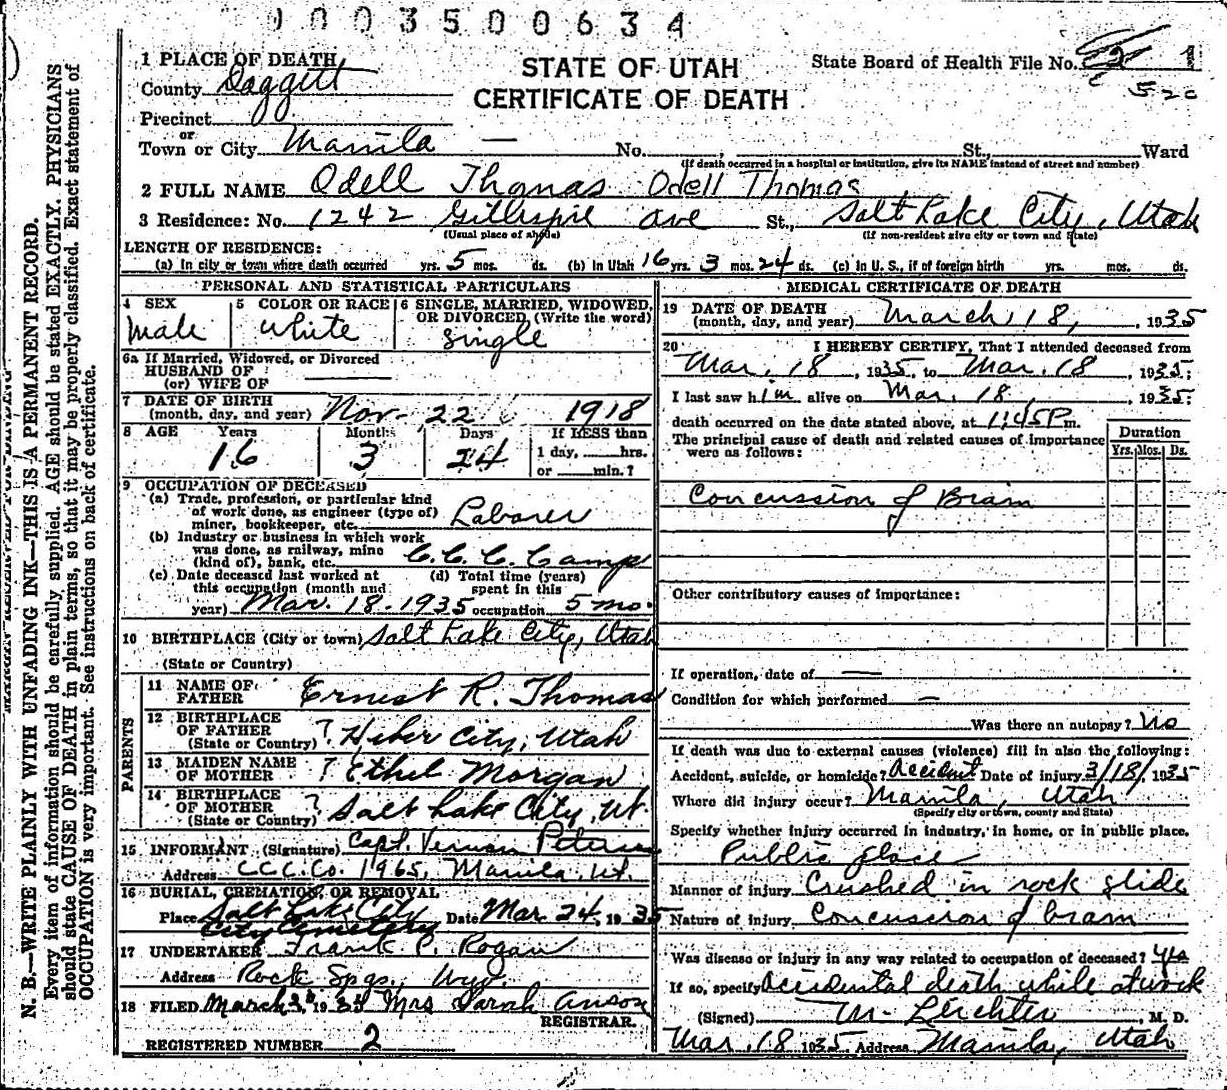 0003500634
1 PLACE OF DEATH
County Daggett
Precinct
or
Town or City Manila — No. , St., Ward
(If death occurred in a hospital or institution, give its NAME instead of street and number)
STATE OF UTAH
CERTIFICATE OF DEATH
State Board of Health File No. 1
520
2 FULL NAME Odell Thomas Odell Thomas
3 Residence: No. 1242 Gillespie ave St., Salt Lake City, Utah
(Usual place of abode) (If non-resident give city or town and State)
LENGTH OF RESIDENCE:
(a) In city or town where death occurred yrs. 5 mos. ds. (b) In Utah 16 yrs. 3 mos. 24 ds. (c) In U. S., if of foreign birth yrs. mos. ds.
PERSONAL AND STATISTICAL PARTICULARS
4 SEX
Male
5 COLOR OR RACE
White
6 SINGLE, MARRIED, WIDOWED, OR DIVORCED, (Write the word)
Single
6a If Married, Widowed, or Divorced
HUSBAND OF
(or) WIFE OF
7 DATE OF BIRTH
(month, day, and year) Nov. 22 1918
8 AGE Years Months Days If LESS than
16 3 24 1 day, hrs.
or min.?
9 OCCUPATION OF DECEASED
(a) Trade, profession, or particular kind
of work done, as engineer (type of)
miner, bookkeeper, etc. Laborer
(b) Industry or business in which work
was done, as railway, mine
(kind of), bank, etc. C.C.C. Camp
(c) Date deceased last worked at (d) Total time (years)
this occupation (month and spent in this
year) Mar. 18 - 1935 occupation 5 mo.
10 BIRTHPLACE (City or town) Salt Lake City, Utah
(State or Country)
PARENTS
11 NAME OF
FATHER Ernest R. Thomas
12 BIRTHPLACE
OF FATHER ? Heber City, Utah
(State or Country)
13 MAIDEN NAME
OF MOTHER ? Ethel Morgan
14 BIRTHPLACE
OF MOTHER ? Salt Lake City, Ut.
(State or Country)
15 INFORMANT (Signature) Capt. Vernon Peterson
Address C.C.C. Co. 1965, Manila, Ut.
16 BURIAL, CREMATION, OR REMOVAL
Place Salt Lake City Date Mar. 24, 1935
City Cemetery
17 UNDERTAKER Frank C. Rogan
Address Rock Spgs., Wyo.
18 FILED March 1935 Mrs Sarah Anson
REGISTRAR.
REGISTERED NUMBER 2
MEDICAL CERTIFICATE OF DEATH
19 DATE OF DEATH
(month, day, and year) March, 18, , 1935
20 I HEREBY CERTIFY, That I attended deceased from
Mar. 18 , 1935, to Mar. 18 , 1935;
I last saw him alive on Mar. 18, , 1935;
death occurred on the date stated above, at 1:45 P m.
The principal cause of death and related causes of importance
were as follows:
Duration
Yrs. Mos. Ds.
Concussion of Brain
Other contributory causes of importance:
If operation, date of —
Condition for which performed —
Was there an autopsy? No
If death was due to external causes (violence) fill in also the following:
Accident, suicide, or homicide? Accident Date of injury 3/18/, 1935
Where did injury occur? Manila, Utah
(Specify city or town, county and State)
Specify whether injury occurred in industry, in home, or in public place.
Public place
Manner of injury Crushed in rock slide
Nature of injury Concussion of brain
Was disease or injury in any way related to occupation of deceased? Yes
If so, specify Accidental death while at work
(Signed) M. Leichter , M. D.
Mar. 18 1935. Address Manila, Utah
N. B.—WRITE PLAINLY WITH UNFADING INK—THIS IS A PERMANENT RECORD.
Every item of information should be carefully supplied. AGE should be stated EXACTLY. PHYSICIANS
should state CAUSE OF DEATH in plain terms, so that it may be properly classified. Exact statement of
OCCUPATION is very important. See instructions on back of certificate.